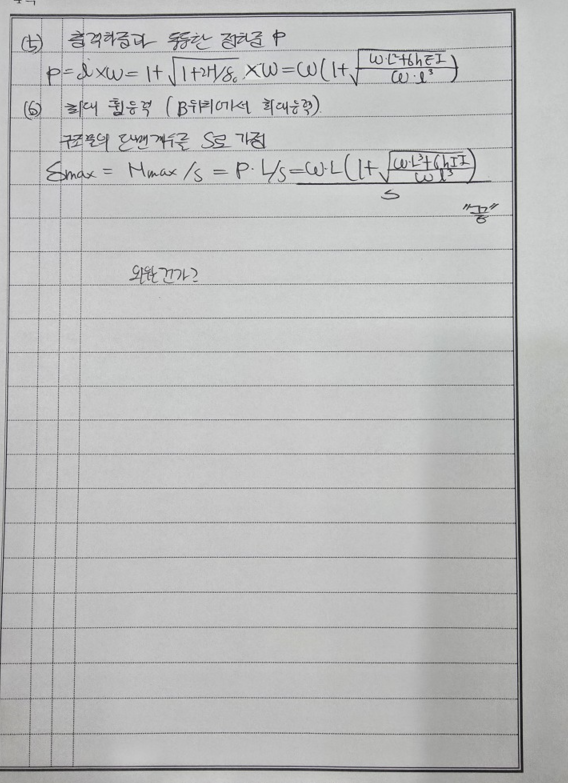 (5) 충격하중과 동등한 정하중 P
P = i × W = 1+√(1+2h/δ₀) × W = W(1+√((W·L³+6hEI)/(W·l³)))
(6) 최대 휨응력 (B위치에서 최대응력)
구조물의 단면계수를 S로 가정
δmax = Mmax/S = P·L/S = W·L(1+√((W·L³+6hEI)/(W l³)))/S
"끝"